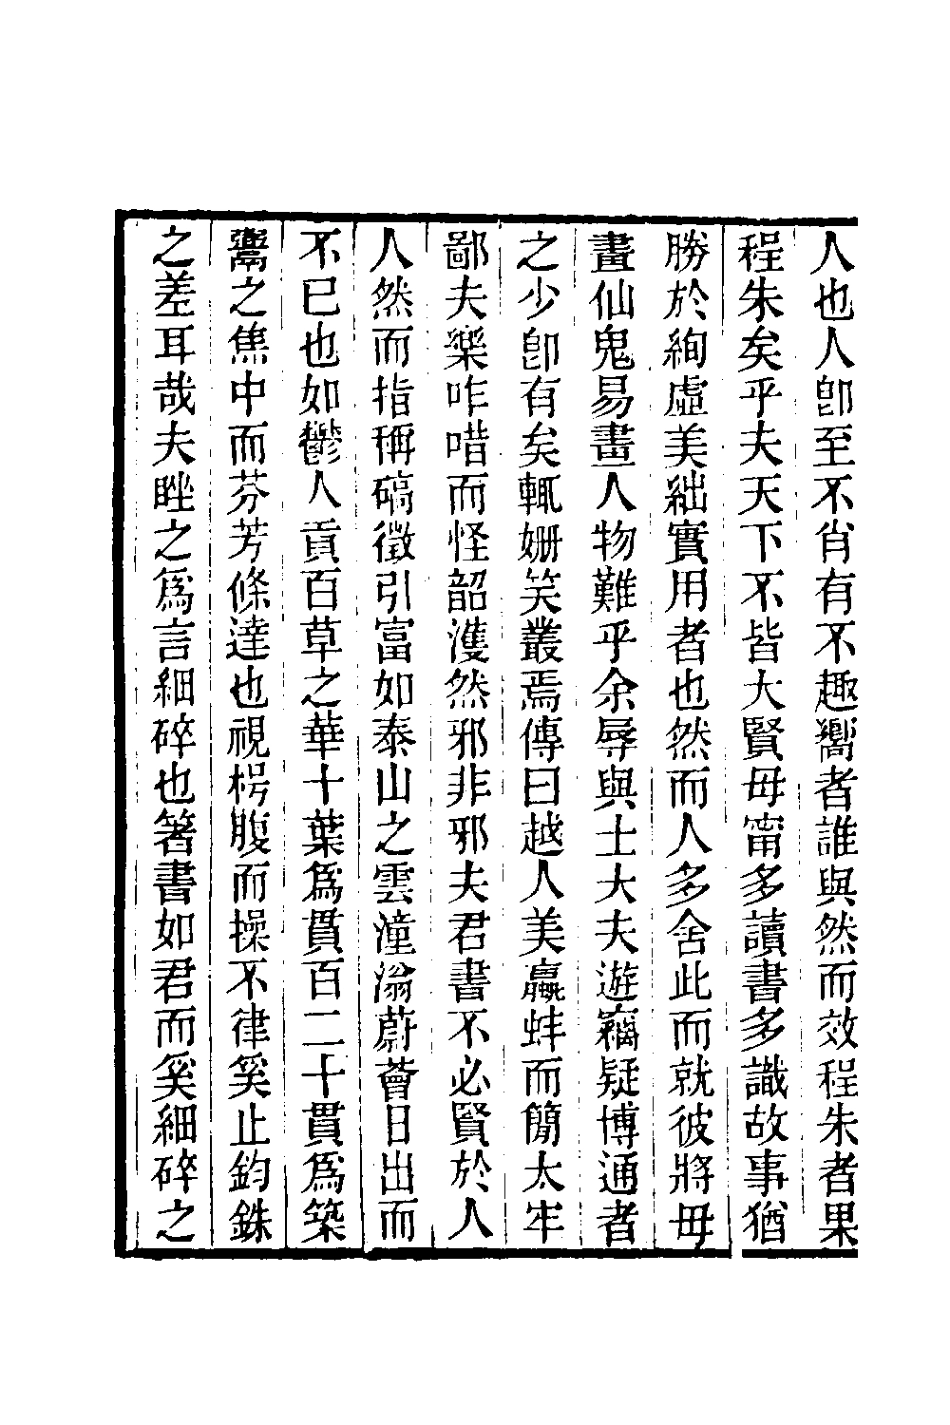 人也人卽至不肖有不趣嚮者誰與然而效程朱者果
程朱矣乎夫天下不皆大賢毋甯多讀書多識故事猶
勝於絢虛美絀實用者也然而人多舍此而就彼將毋
畫仙鬼易畫人物難乎余辱與士大夫遊竊疑博通者
之少卽有矣輒姍笑叢焉傳曰越人美蠃蚌而簡太牢
鄙夫樂咋唶而怪韶濩然邪非邪夫君書不必賢於人
人然而指稱碻徵引富如泰山之雲潼滃蔚薈日出而
不已也如鬱人貢百草之華十葉爲貫百二十貫爲築
鬻之焦中而芬芳條達也視枵腹而操不律奚止鈞銖
之差耳哉夫脞之爲言細碎也箸書如君而奚細碎之